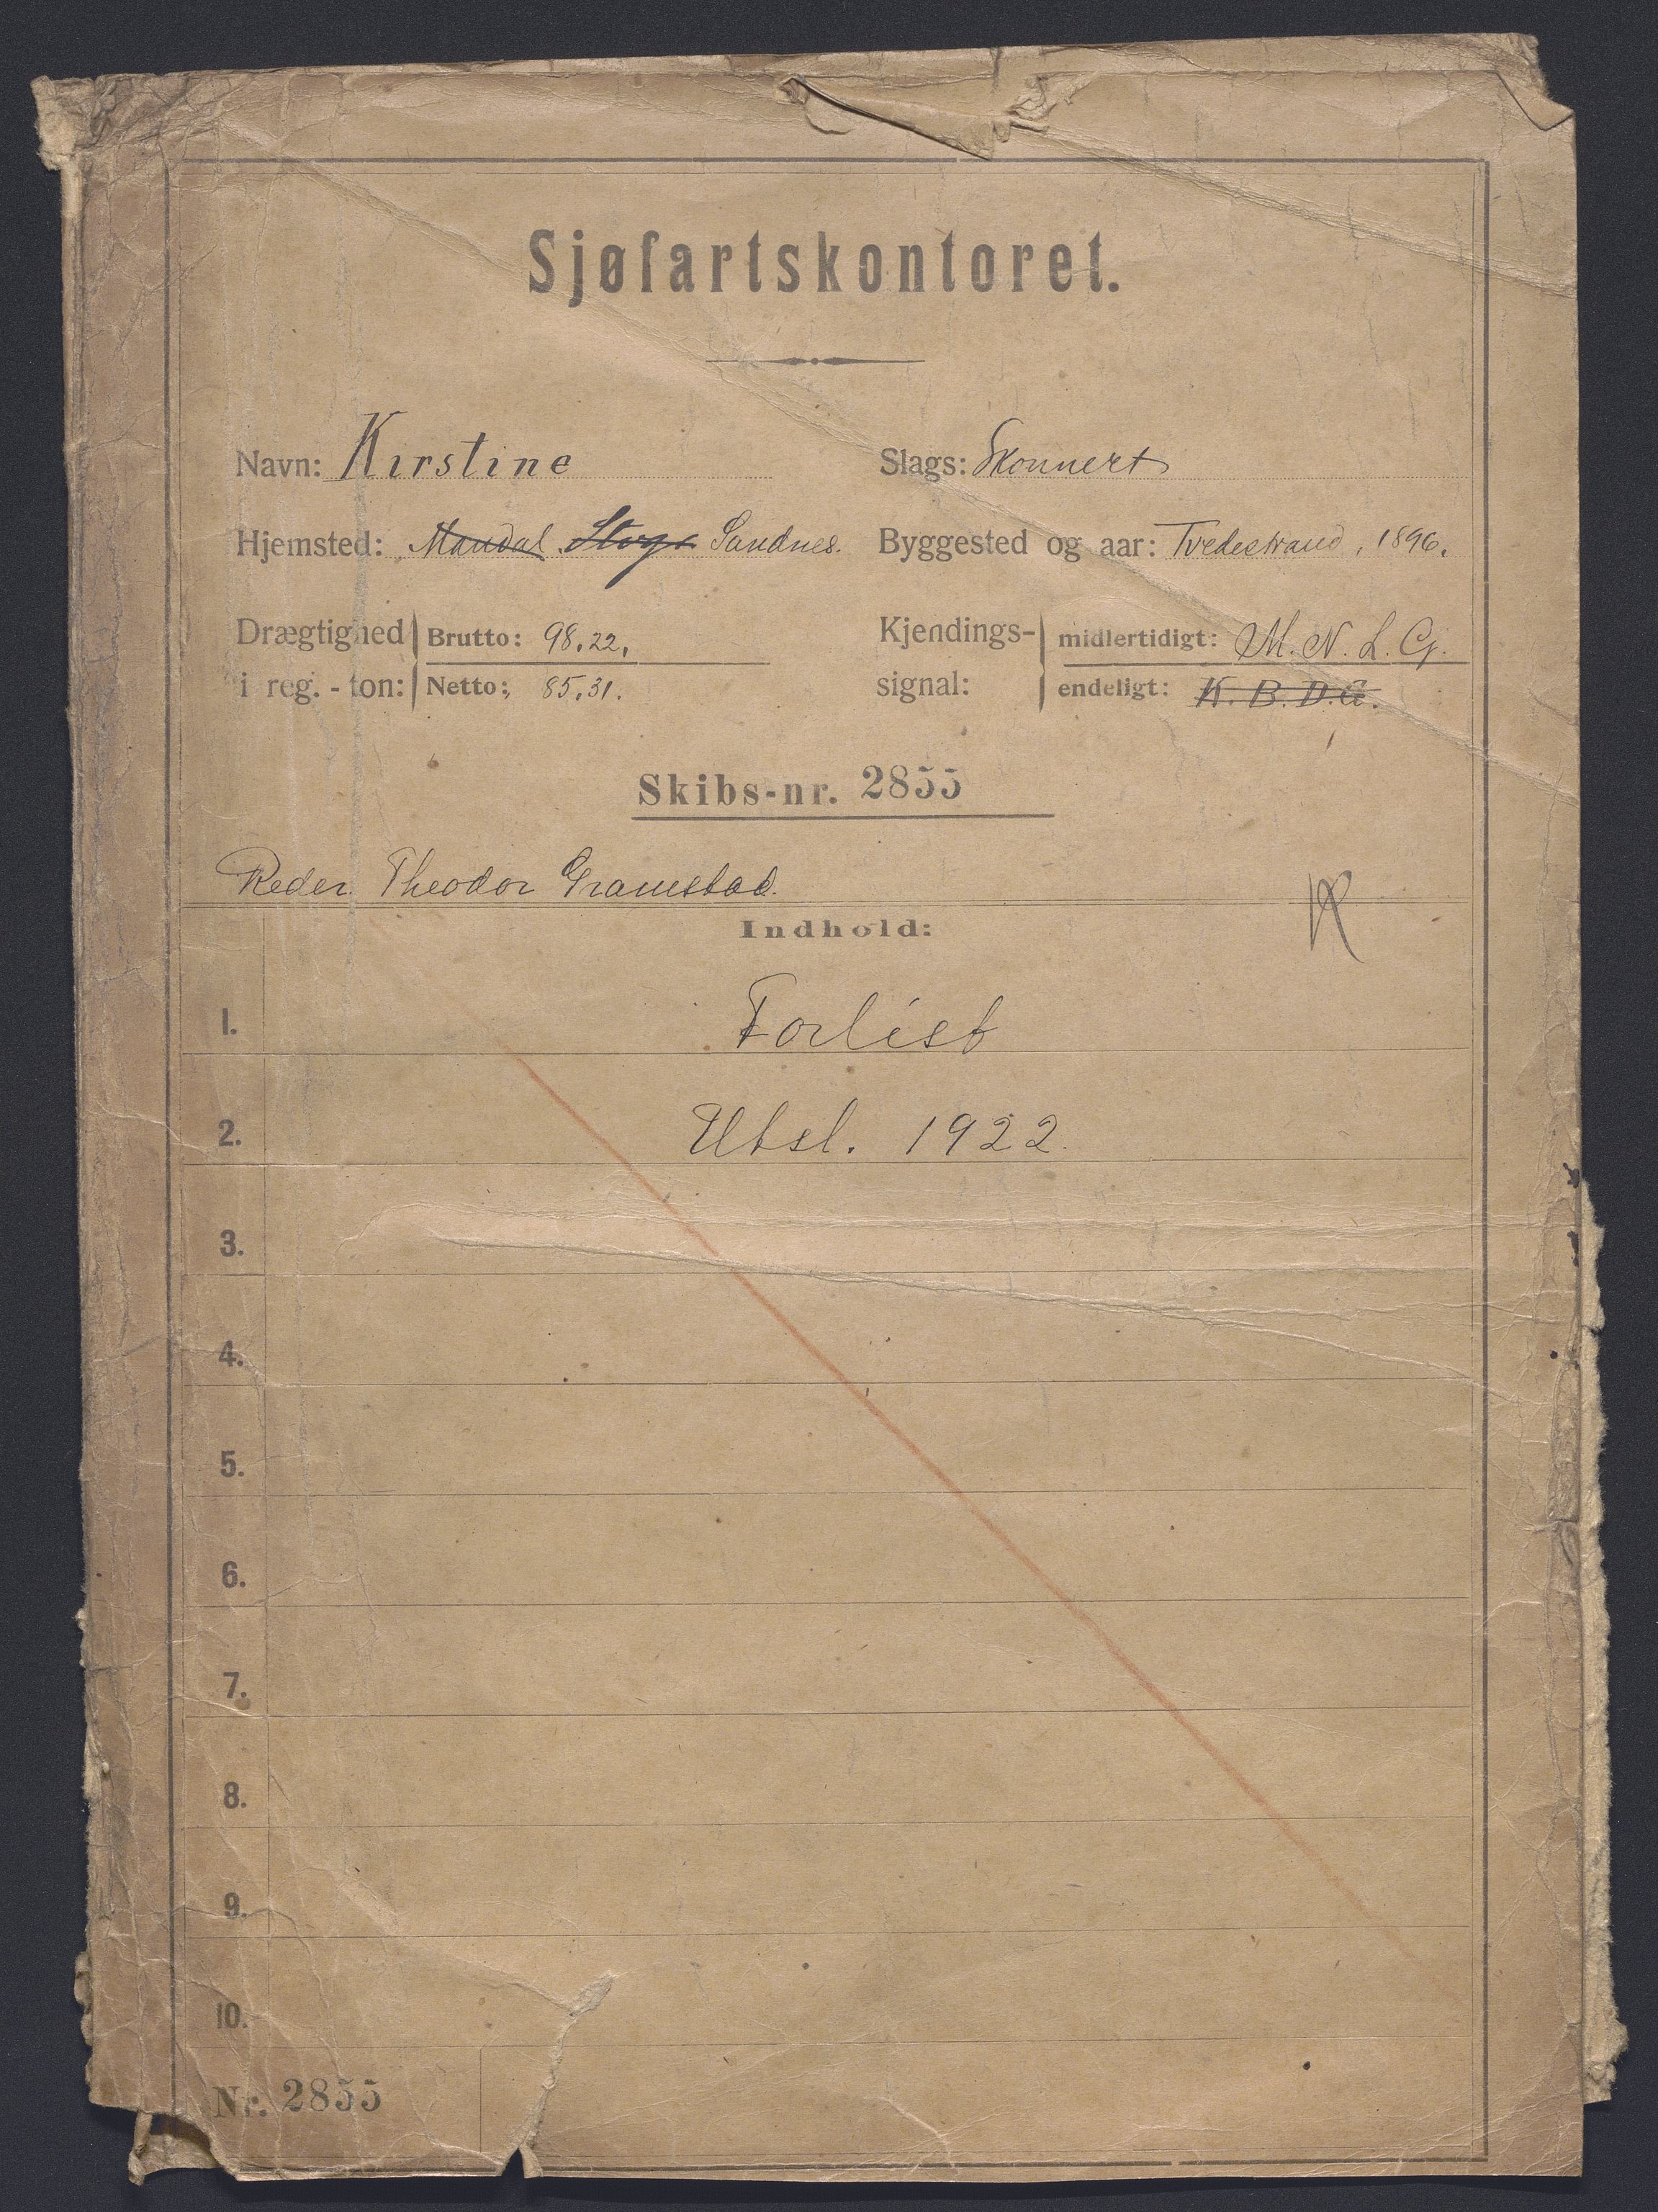 Sjøfartskontoret.
Navn: Kirstine
Slags: Skonnert
Hjemsted: Mandal Sandnes.
Byggested og aar: Tvedestrand, 1896.
Drægtighed i reg.-ton: Brutto: 98,22,
Netto: 85,31.
Kjendings-signal: midlertidigt: M. N. L. G.
endeligt: K. B. D. G.
Skibs-nr. 2855
Reder. Theodor Gramstad.
Indhold:
1. Forlist
2. Utsl. 1922.
3.
4.
5.
6.
7.
8.
9.
10.
Nr. 2855